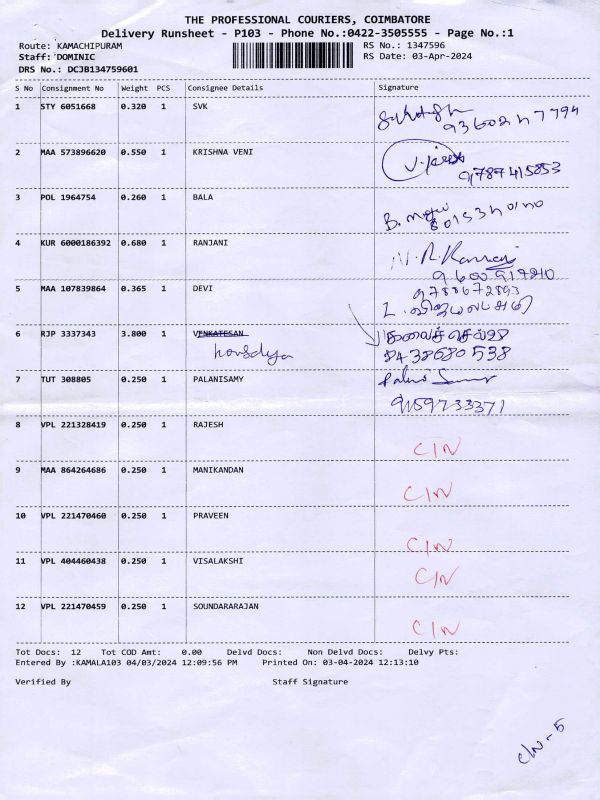 THE PROFESSIONAL COURIERS, COIMBATORE
Delivery Runsheet - P103 - Phone No.:0422-3505555 - Page No.:1
Route: KAMACHIPURAM RS No.: 1347596
Staff: DOMINIC RS Date: 03-Apr-2024
DRS No.: DCJB134759601
S No Consignment No Weight PCS Consignee Details Signature
1 STY 6051668 0.320 1 SVK
2 MAA 573896620 0.550 1 KRISHNA VENI
9787415853
3 POL 1964754 0.260 1 BALA
4 KUR 6000186392 0.680 1 RANJANI
5 MAA 107839864 0.365 1 DEVI
9788672893
6 RJP 3337343 3.800 1 VENKATESAN
8438680538
7 TUT 308805 0.250 1 PALANISAMY
9159733371
8 VPL 221328419 0.250 1 RAJESH
C/N
9 MAA 864264686 0.250 1 MANIKANDAN
C/N
10 VPL 221470460 0.250 1 PRAVEEN
C/N
11 VPL 404460438 0.250 1 VISALAKSHI
C/N
12 VPL 221470459 0.250 1 SOUNDARARAJAN
C/N
Tot Docs: 12 Tot COD Amt: 0.00 Delvd Docs: Non Delvd Docs: Delvy Pts:
Entered By :KAMALA103 04/03/2024 12:09:56 PM Printed On: 03-04-2024 12:13:10
Verified By Staff Signature
C/N - 5